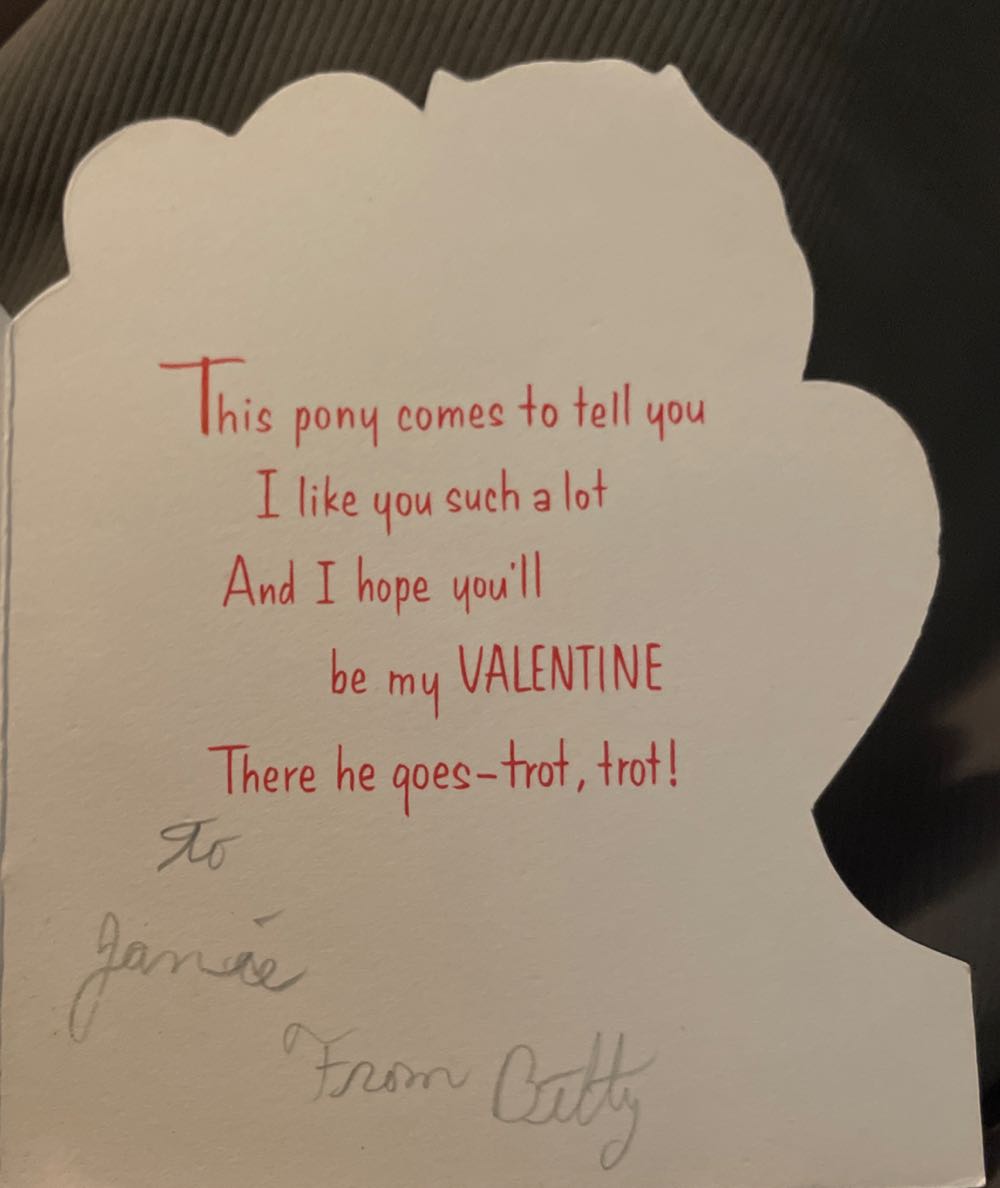 This pony comes to tell you
I like you such a lot
And I hope you'll
be my VALENTINE
There he goes-trot, trot!
To
Janice
From Betty